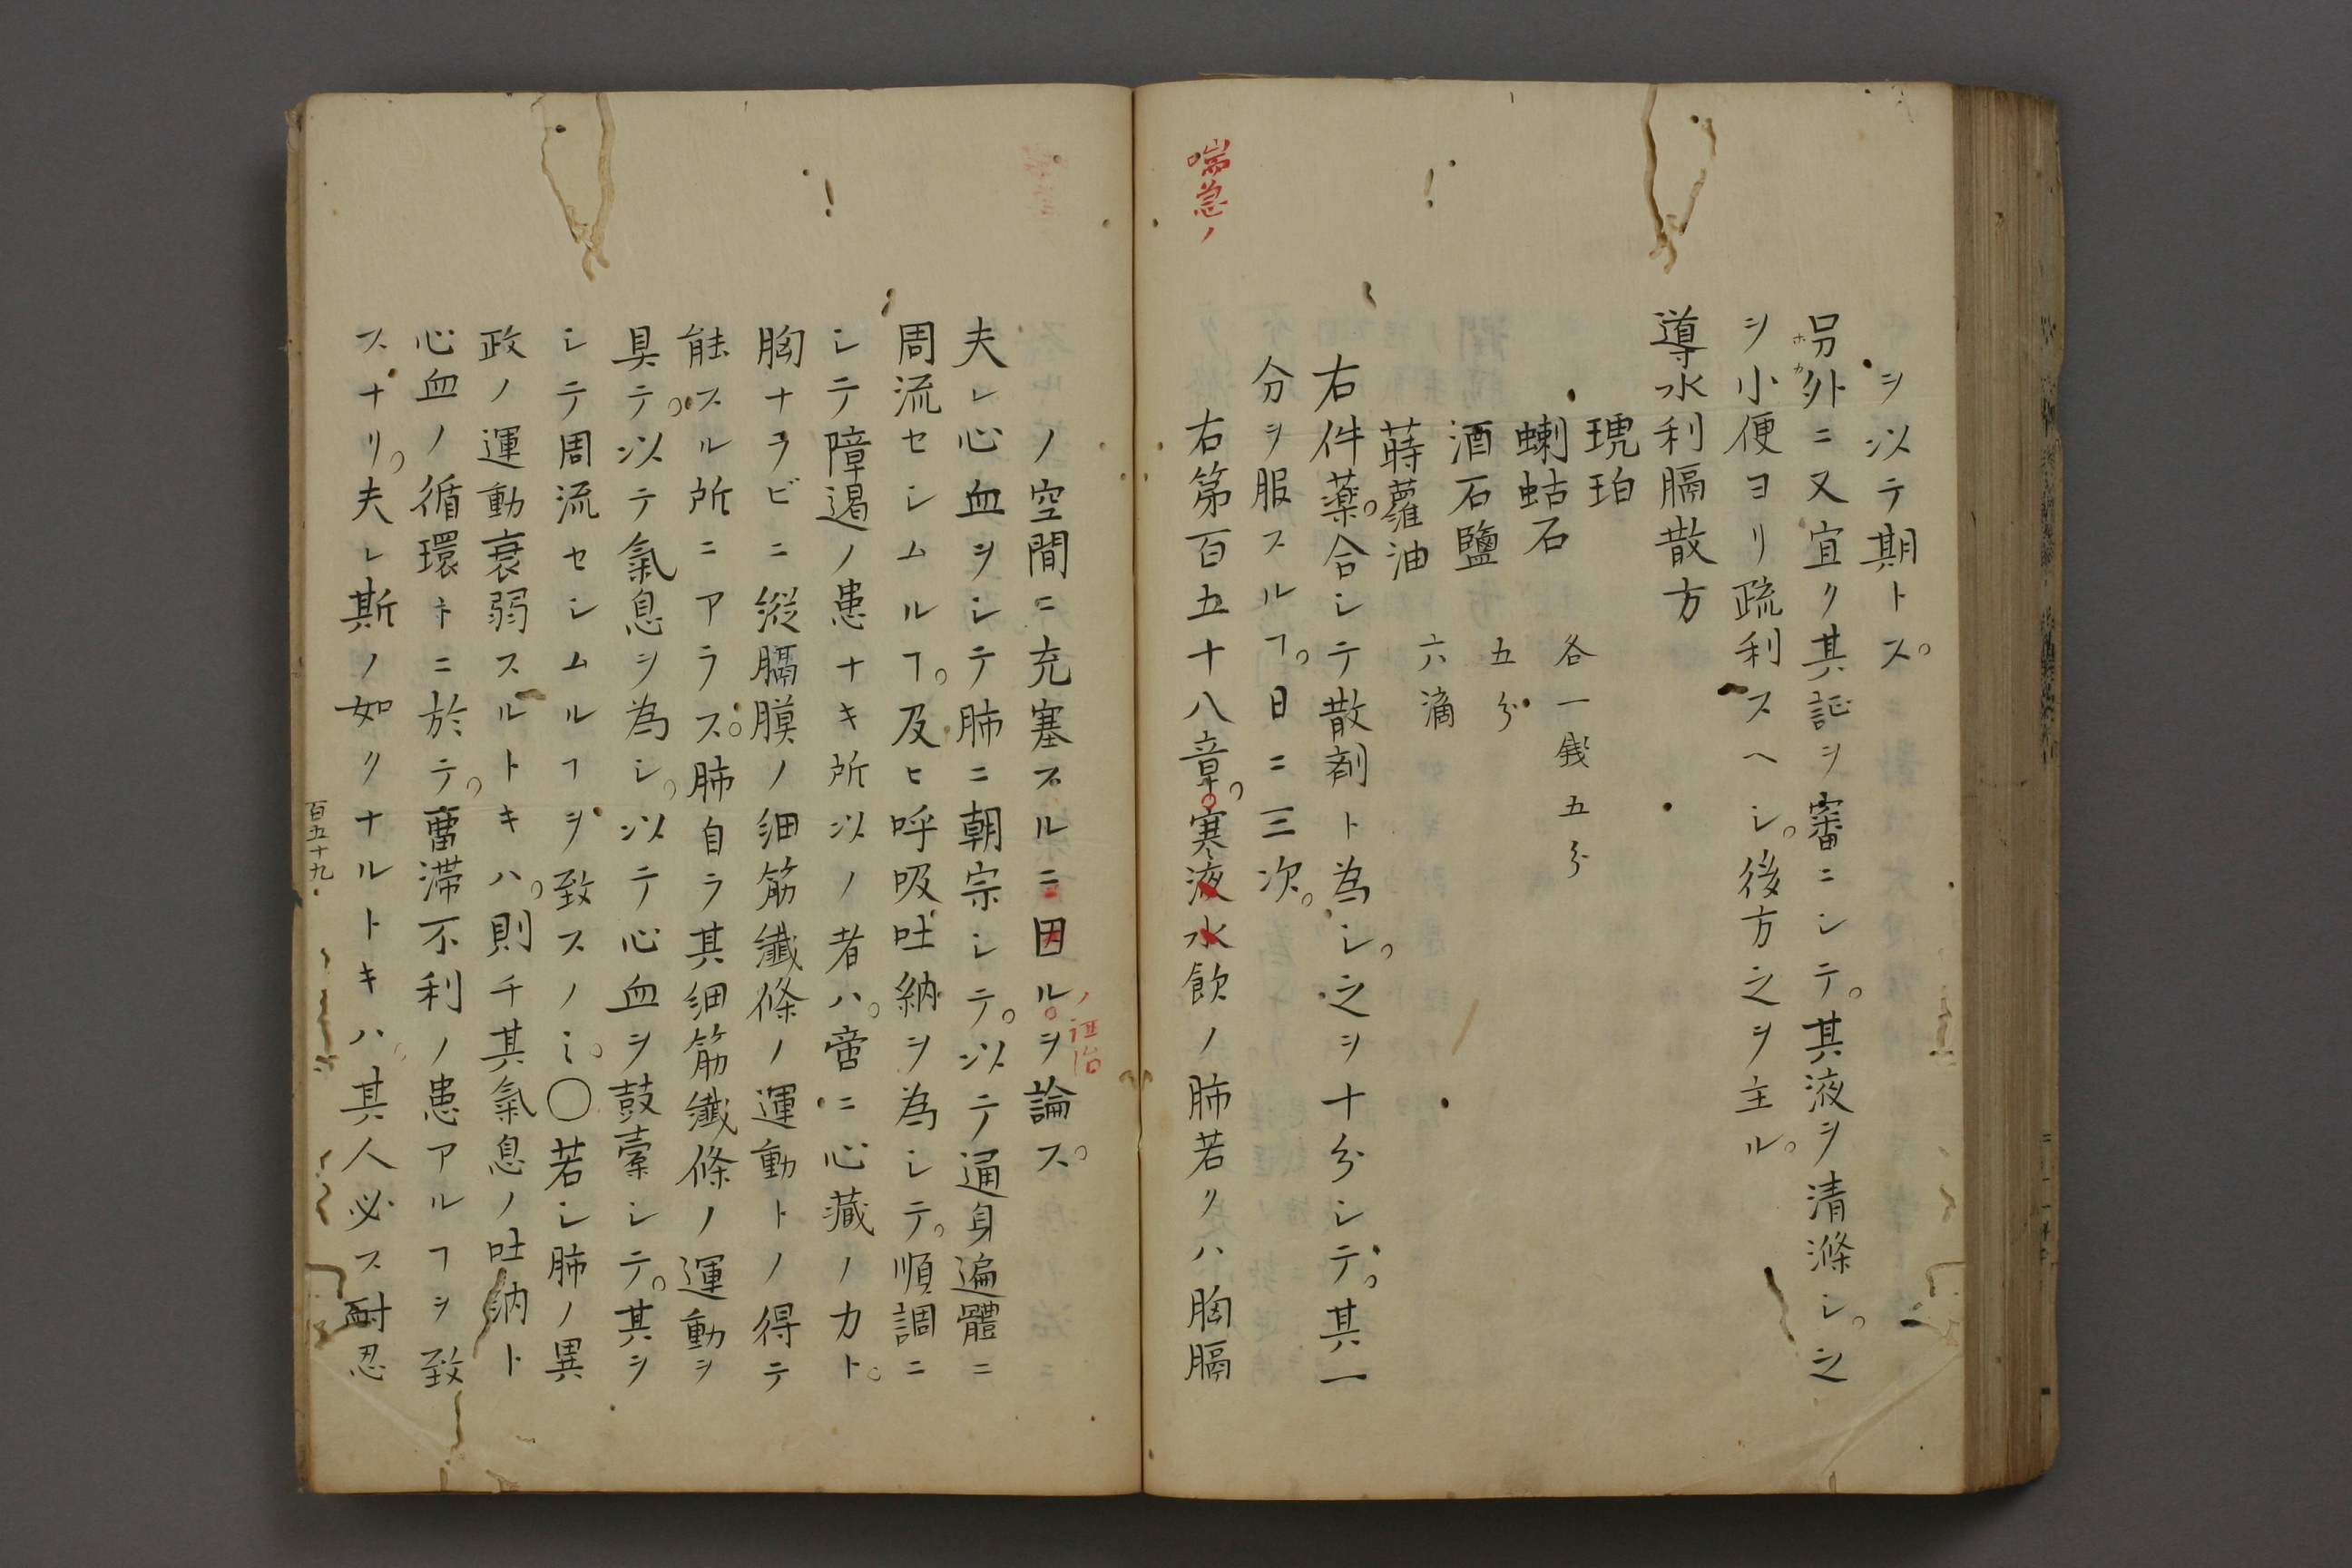 ヲ以テ期トス。
另外ニ又宜ク其証ヲ審ニシテ。其液ヲ清滌シ。之
ホカ
ヲ小便ヨリ疏利スヘシ。後方之ヲ主ル。
導水利膈散方
琥珀
蝲蛄石 各一錢五分
酒石鹽 五分
蒔蘿油 六滴
右件薬。合シテ散剤ト為シ。之ヲ十分シテ。其一
分ヲ服スルヿ。日ニ三次。
喘急ノ
右第百五十八章。寒液水飲ノ肺若クハ胸膈
ノ空間ニ充塞スルニ因ルヲ論ス。
ノ証治
夫レ心血ヲシテ肺ニ朝宗シテ。以テ通身遍體ニ
周流セシムルヿ。及ヒ呼吸吐納ヲ為シテ。順調ニ
シテ障遏ノ患ナキ所以ノ者ハ。啻ニ心藏ノ力ト。
胸ナラビニ縦膈膜ノ細筋纎條ノ運動トノ得テ
能スル所ニアラス。肺自ラ其細筋纎條ノ運動ヲ
具テ。以テ氣息ヲ為シ。以テ心血ヲ鼓橐シテ。其ヲ
シテ周流セシムルヿヲ致スノミ。○若シ肺ノ異
政ノ運動衰弱スルトキハ。則チ其氣息ノ吐納ト
心血ノ循環トニ於テ。畱滞不利ノ患アルヿヲ致
スナリ。夫レ斯ノ如クナルトキハ。其人必ス耐忍
百五十九